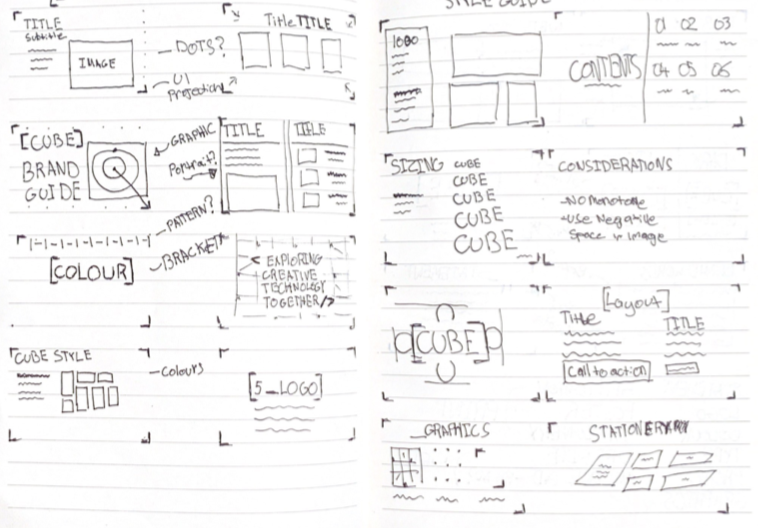 TITLE
Subtitle
IMAGE
- DOTS?
- UI
Projection
Title TITLE
[CUBE]
BRAND
GUIDE
GRAPHIC
Portrait?
TITLE
TITLE
- PATTERN?
[COLOUR]
BRACKET
< EXPLORING
CREATIVE
TECHNOLOGY
TOGETHER/>
CUBE STYLE
- Colours
[5_LOGO]
STYLE GUIDE
LOGO
CONTENTS
01 02 03
04 05 06
SIZING
CUBE
CUBE
CUBE
CUBE
CUBE
CONSIDERATIONS
- No Monotone
- Use Negative
Space in Image
[CUBE]
[Layout]
Title
TITLE
Call to action
_GRAPHICS
STATIONERY